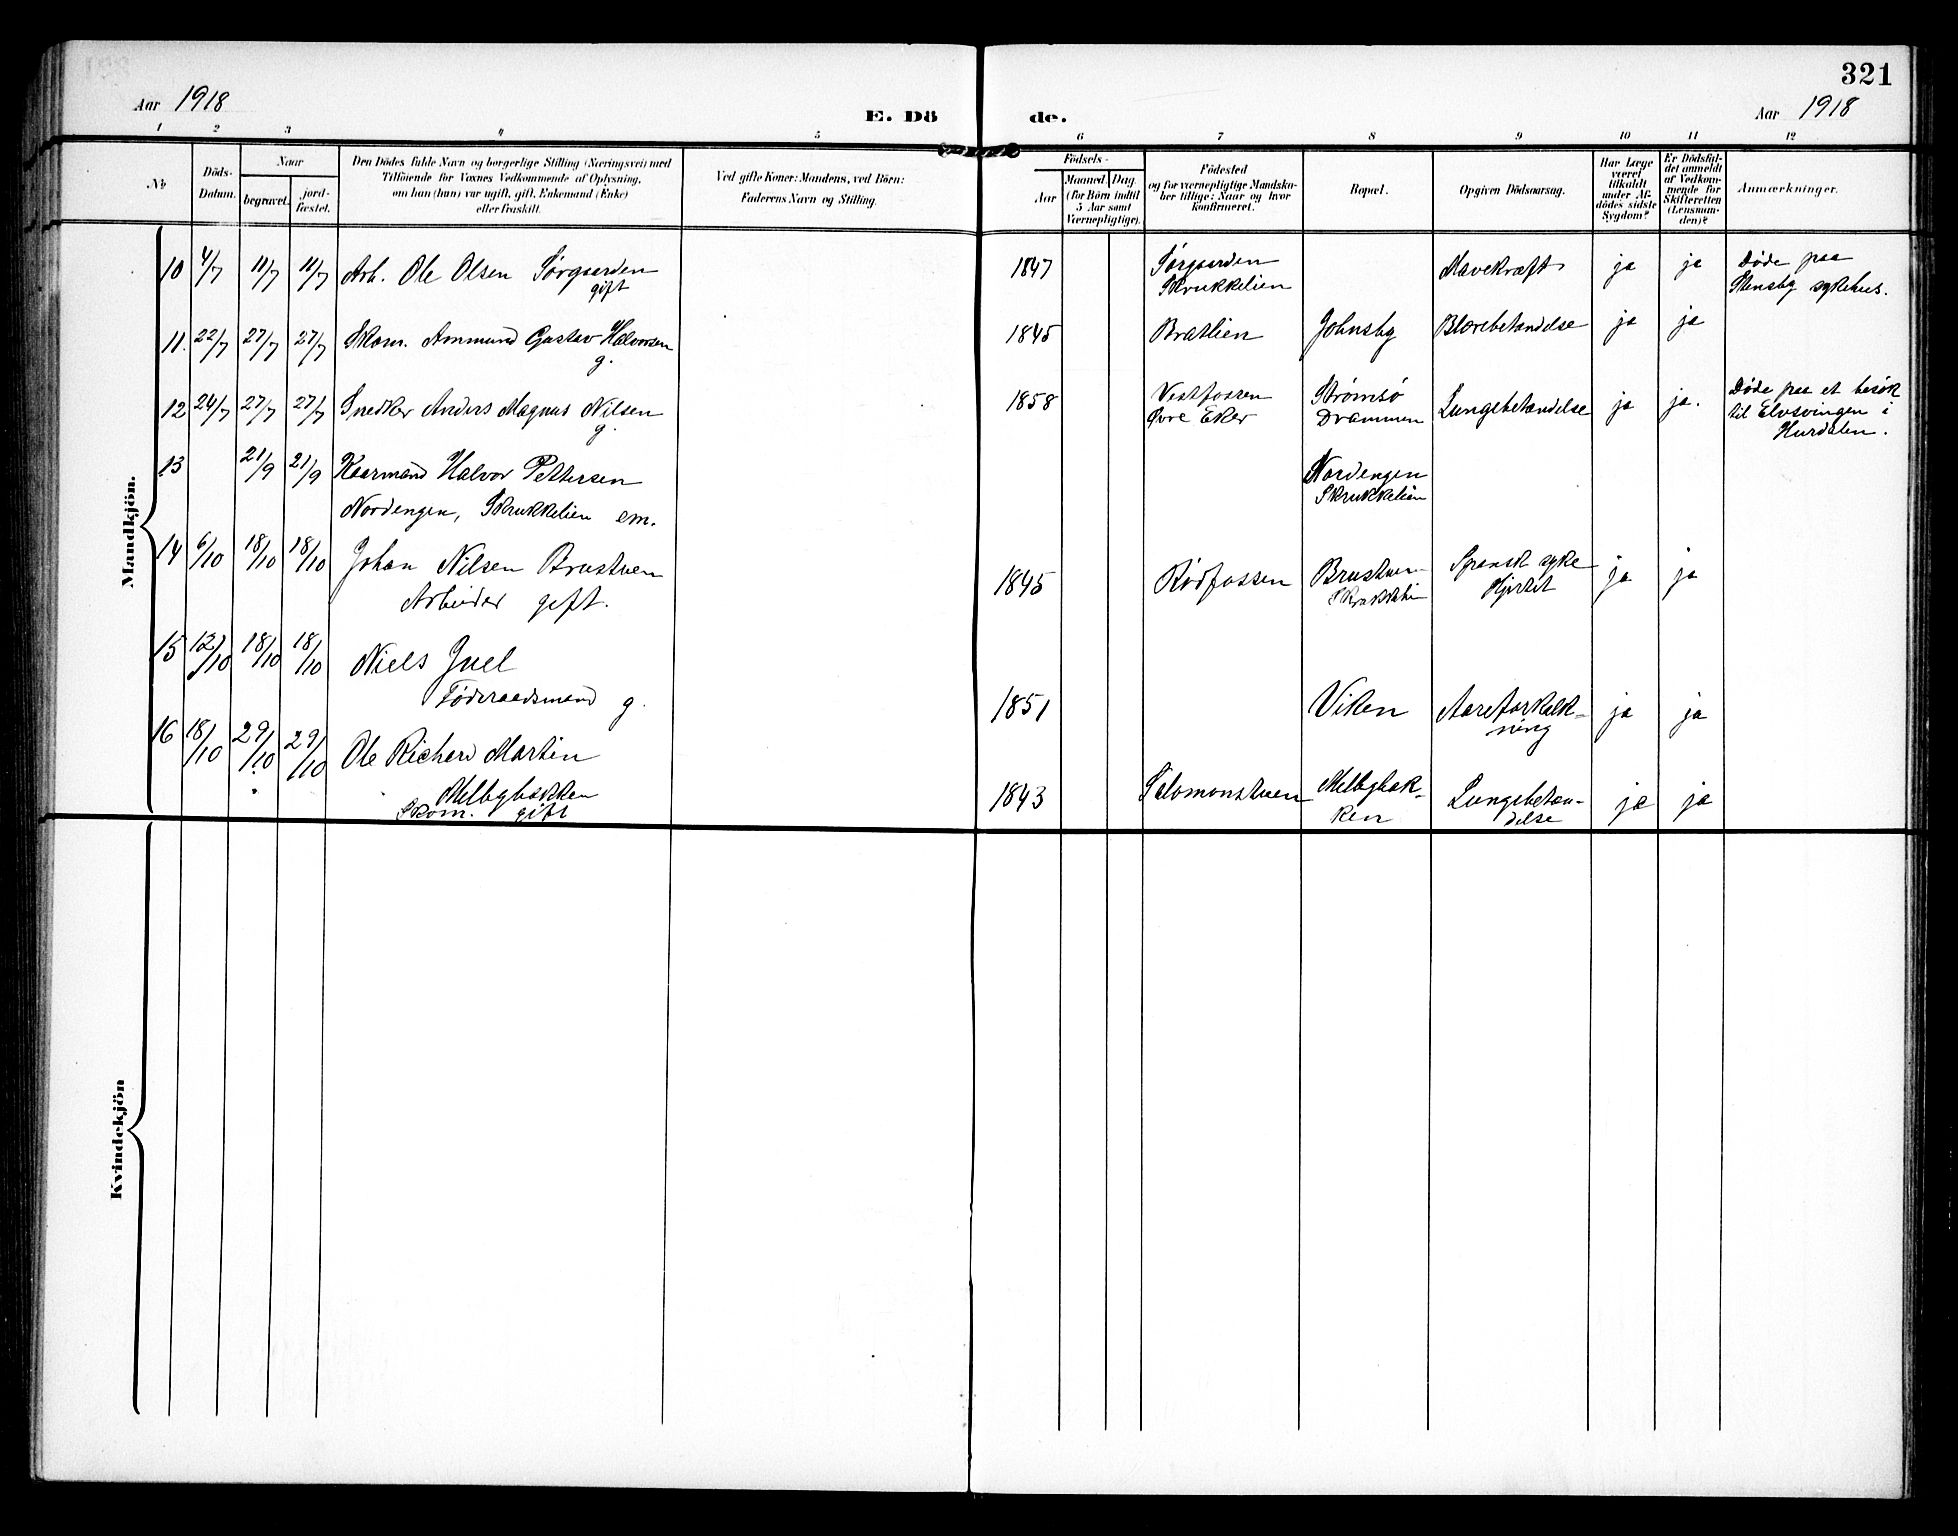 321
Aar 1918
E. Dö de.
Aar 1918
1 2 3 4 5 6 7 8 9 10 11 12
No
Döds-
Datum.
Naar
begravet.
jord-
fæstet.
Den Dödes fulde Navn og borgerlige Stilling (Næringsvei) med
Tilföiende for Voxnes Vedkommende af Oplysning,
om han (hun) var ugift, gift, Enkemand (Enke)
eller fraskilt.
Ved gifte Koner: Mandens, ved Börn:
Faderens Navn og Stilling.
Födsels-
Aar
Maaned Dag.
(for Börn indtil
5 Aar samt
Værnepligtige).
Födested
og for værnepligtige Mandska-
ber tillige: Naar og hvor
konfirmeret.
Bopæl.
Opgiven Dödsaarsag.
Har Læge
været
tilkaldt
under Af-
dödes sidste
Sygdom?
Er Dödsfal-
det anmeldt
af Vedkom-
mende for
Skifteretten
(Lensman-
den)?
Anmærkninger.
Mandkjön.
10 4/7 11/7 11/7 Arb. Ole Olsen Sørgaarden
gift
1847 Sørgaarden
Skrukkelien
Mavekræft ja ja Døde paa
Stensby sykehus.
11. 22/7 27/7 27/7 Skom. Ammund Gustav Halvorsen
g.
1845 Bratlien Johnsby Blærebetændelse ja ja
12 24/7 27/7 27/7 Snedker Anders Magnus Nilsen
g.
1858 Vestfossen
Øvre Eker
Strømsø
Drammen
Lungebetændelse ja ja. Døde paa et besøk
til Elvsvingen i
Hurdalen.
13 21/9 21/9 Kaarmand Halvor Pettersen
Nordengen, Skrukkelien em.
Nordengen
Skrukkelien
14 6/10 18/10 18/10 Johan Nilsen Brustuen
Arbeider gift.
1845 Rødfossen Brustuen
Spansk syke
Hjertet
ja ja
15 12/10 18/10 18/10 Niels Juel
Føderaadsmand g.
1851 Viken Aareforkalk-
ning
ja ja
16 18/10 29/10 29/10 Ole Richard Martin
Melbybakken
Skom. gift
1843 Salomonstuen Melbybak-
ken
Lungebetæn-
delse
ja ja
Kvindekjön